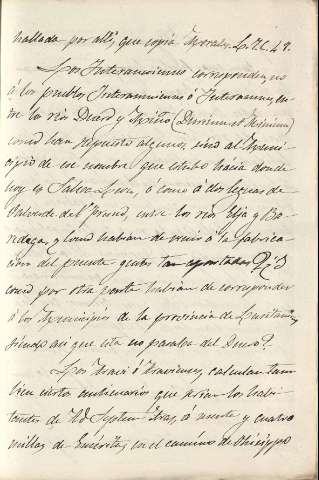 hallada por allí, que copia Morales L. 9. C. 28.
Los Interamnienses corresponden, no
á los pueblos Interamnienses ó Interamnes, en
tre los rios Duero y Miño (Durium et Minium)
como han supuesto algunos, sino al Muni
cipio de ese nombre que estubo hácia donde
hoy es Salva Leon, ó como á dos leguas de
Valverde del Fresno, entre los rios Elja y
y como habian de venir á la fabrica
cion del puente gentes tan apartadas? ¿O
como por otra parte habian de corresponder
á los Municipios de la provincia de Lusitania,
siendo asi que esta no pasaba del Duero?
Los ó calculan tam
bien ciertos anticuarios que serian los habi
tantes de Ad Septem Aras, á veinte y cuatro
millas de Emérita, en el camino de Olisippo